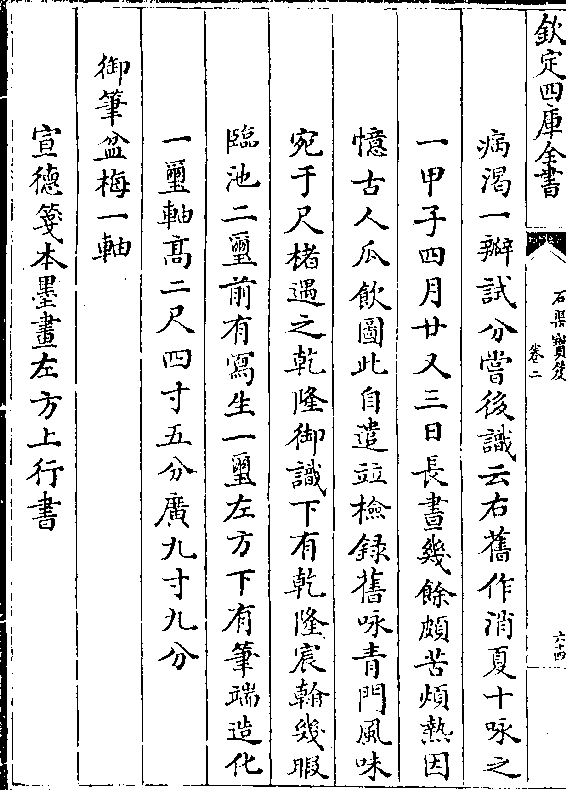 欽定四庫全書
石渠寶笈
卷二
六十四
病渴一瓣試分嘗後識云右舊作消夏十咏之
一甲子四月廿又三日長晝幾餘頗苦煩熱因
憶古人瓜飲圖此自遣竝檢録舊咏青門風味
宛于尺楮遇之乾隆御識下有乾隆宸翰幾暇
臨池二璽前有寫生一璽左方下有筆端造化
一璽軸髙二尺四寸五分廣九寸九分
御筆盆梅一軸
宣德箋本墨畫左方上行書